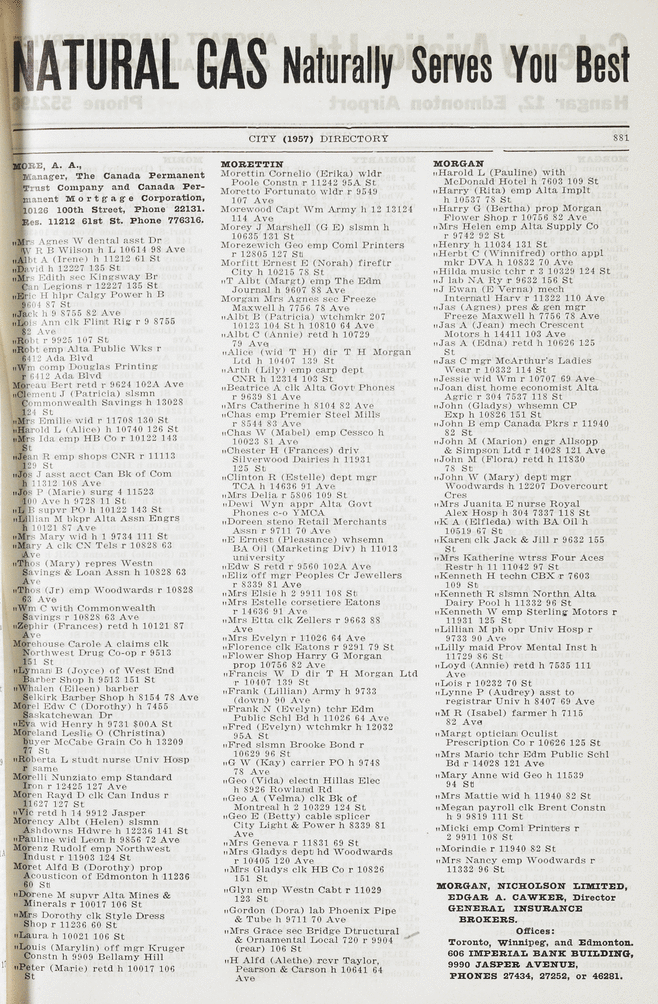 NATURAL GAS Naturally Serves You Best
CITY (1957) DIRECTORY 881
MORE, A. A.,
Manager, The Canada Permanent
Trust Company and Canada Per-
manent Mortgage Corporation,
10126 100th Street, Phone 22131.
Res. 11212 61st St. Phone 776316.
„Mrs Agnes W dental asst Dr
W R B Wilson h L 10614 98 Ave
„Albt A (Irene) h 11212 61 St
„David h 12227 135 St
„Mrs Edith sec Kingsway Br
Can Legions r 12227 135 St
„Eric H hlpr Calgy Power h B
9604 87 St
„Jack h 9 8755 82 Ave
„Lois Ann clk Flint Rig r 9 8755
82 Ave
„Robt r 9925 107 St
„Robt emp Alta Public Wks r
6412 Ada Blvd
„Wm comp Douglas Printing
r 6412 Ada Blvd
Moreau Bert retd r 9624 102A Ave
„Clement J (Patricia) slsmn
Commonwealth Savings h 13028
124 St
„Mrs Emilie wid r 11708 130 St
„Harold L (Alice) h 10740 126 St
„Mrs Ida emp HB Co r 10122 143
St
„Jean R emp shops CNR r 11113
129 St
„Jos J asst acct Can Bk of Com
h 11312 108 Ave
„Jos P (Marie) surg 4 11523
100 Ave h 9728 11 St
„L B supvr PO h 10122 143 St
„Lillian M bkpr Alta Assn Engrs
h 10121 87 Ave
„Mrs Mary wid h 1 9734 111 St
„Mary A clk CN Tels r 10828 63
Ave
„Thos (Mary) repres Westn
Savings & Loan Assn h 10828 63
Ave
„Thos (Jr) emp Woodwards r 10828
63 Ave
„Wm C with Commonwealth
Savings r 10828 63 Ave
„Zephir (Frances) retd h 10121 87
Ave
Morehouse Carole A claims clk
Northwest Drug Co-op r 9513
151 St
„Lyman B (Joyce) of West End
Barber Shop h 9513 151 St
„Whalen (Eileen) barber
Selkirk Barber Shop h 8154 78 Ave
Morel Edw C (Dorothy) h 7455
Saskatchewan Dr
„Eva wid Henry h 9731 $00A St
Moreland Leslie O (Christina)
buyer McCabe Grain Co h 13209
77 St
„Roberta L studt nurse Univ Hosp
r same
Morelli Nunziato emp Standard
Iron r 12425 127 Ave
Moren Rayd D clk Can Indus r
11627 127 St
„Vic retd h 14 9912 Jasper
Morency Albt (Helen) slsmn
Ashdowns Hdwre h 12236 141 St
„Pauline wid Leon h 9856 72 Ave
Morenz Rudolf emp Northwest
Indust r 11903 124 St
Moret Alfd B (Dorothy) prop
Acousticon of Edmonton h 11236
60 St
„Dorene M supvr Alta Mines &
Minerals r 10017 106 St
„Mrs Dorothy clk Style Dress
Shop r 11236 60 St
„Laura h 10021 106 St
„Louis (Marylin) off mgr Kruger
Constn h 9909 Bellamy Hill
„Peter (Marie) retd h 10017 106
St
MORETTIN
Morettin Cornelio (Erika) wldr
Poole Constn r 11242 95A St
Moretto Fortunato wldr r 9549
107 Ave
Morewood Capt Wm Army h 12 13124
114 Ave
Morey J Marshell (G E) slsmn h
10635 131 St
Morezewich Geo emp Coml Printers
r 12805 127 St
Morfitt Ernest E (Norah) fireftr
City h 10215 78 St
„T Albt (Margt) emp The Edm
Journal h 9607 88 Ave
Morgan Mrs Agnes sec Freeze
Maxwell h 7756 78 Ave
„Albt B (Patricia) wtchmkr 207
10123 104 St h 10810 64 Ave
„Albt C (Annie) retd h 10729
79 Ave
„Alice (wid T H) dir T H Morgan
Ltd h 10407 139 St
„Arth (Lily) emp carp dept
CNR h 12314 103 St
„Beatrice A clk Alta Govt Phones
r 9639 81 Ave
„Mrs Catherine h 8104 82 Ave
„Chas emp Premier Steel Mills
r 8544 83 Ave
„Chas W (Mabel) emp Cessco h
10023 81 Ave
„Chester H (Frances) driv
Silverwood Dairies h 11931
125 St
„Clinton R (Estelle) dept mgr
TCA h 14636 91 Ave
„Mrs Delia r 5806 109 St
„Dewi Wyn appr Alta Govt
Phones c-o YMCA
„Doreen steno Retail Merchants
Assn r 9711 70 Ave
„E Ernest (Pleasance) whsemn
BA Oil (Marketing Div) h 11013
university
„Edw S retd r 9560 102A Ave
„Eliz off mgr Peoples Cr Jewellers
r 8339 81 Ave
„Mrs Elsie h 2 9911 108 St
„Mrs Estelle corsetiere Eatons
r 14636 91 Ave
„Mrs Etta clk Zellers r 9663 88
Ave
„Mrs Evelyn r 11026 64 Ave
„Florence clk Eatons r 9291 79 St
„Flower Shop Harry G Morgan
prop 10756 82 Ave
„Francis W D dir T H Morgan Ltd
r 10407 139 St
„Frank (Lillian) Army h 9733
(down) 90 Ave
„Frank N (Evelyn) tchr Edm
Public Schl Bd h 11026 64 Ave
„Fred (Evelyn) wtchmkr h 12032
95A St
„Fred slsmn Brooke Bond r
10629 96 St
„G W (Kay) carrier PO h 9748
78 Ave
„Geo (Vida) electn Hillas Elec
h 8926 Rowland Rd
„Geo A (Velma) clk Bk of
Montreal h 2 10329 124 St
„Geo E (Betty) cable splicer
City Light & Power h 8339 81
Ave
„Mrs Geneva r 11831 69 St
„Mrs Gladys dept hd Woodwards
r 10405 120 Ave
„Mrs Gladys clk HB Co r 10826
151 St
„Glyn emp Westn Cabt r 11029
123 St
„Gordon (Dora) lab Phoenix Pipe
& Tube h 9711 70 Ave
„Mrs Grace sec Bridge Dtructural
& Ornamental Local 720 r 9904
(rear) 106 St
„H Alfd (Alethe) rcvr Taylor,
Pearson & Carson h 10641 64
Ave
MORGAN
„Harold L (Pauline) with
McDonald Hotel h 7603 109 St
„Harry (Rita) emp Alta Implt
h 10537 78 St
„Harry G (Bertha) prop Morgan
Flower Shop r 10756 82 Ave
„Mrs Helen emp Alta Supply Co
r 9742 92 St
„Henry h 11034 131 St
„Herbt C (Winnifred) ortho appl
mkr DVA h 10832 70 Ave
„Hilda music tchr r 3 10329 124 St
„J lab NA Ry r 9632 156 St
„J Ewan (E Verna) mech
Internatl Harv r 11322 110 Ave
„Jas (Agnes) pres & gen mgr
Freeze Maxwell h 7756 78 Ave
„Jas A (Jean) mech Crescent
Motors h 14411 103 Ave
„Jas A (Edna) retd h 10626 125
St
„Jas C mgr McArthur's Ladies
Wear r 10332 114 St
„Jessie wid Wm r 10707 69 Ave
„Joan dist home economist Alta
Agric r 304 7537 118 St
„John (Gladys) whsemn CP
Exp h 10826 151 St
„John B emp Canada Pkrs r 11940
82 St
„John M (Marion) engr Allsopp
& Simpson Ltd r 14028 121 Ave
„John M (Flora) retd h 11830
78 St
„John W (Mary) dept mgr
Woodwards h 12207 Dovercourt
Cres
„Mrs Juanita E nurse Royal
Alex Hosp h 304 7337 118 St
„K A (Elfleda) with BA Oil h
10519 67 St
„Karen clk Jack & Jill r 9632 155
St
„Mrs Katherine wtrss Four Aces
Restr h 11 11042 97 St
„Kenneth H techn CBX r 7603
109 St
„Kenneth R slsmn Northn Alta
Dairy Pool h 11332 96 St
„Kenneth W emp Sterling Motors r
11931 125 St
„Lillian M ph opr Univ Hosp r
9733 90 Ave
„Lilly maid Prov Mental Inst h
11729 86 St
„Loyd (Annie) retd h 7535 111
Ave
„Lois r 10232 70 St
„Lynne P (Audrey) asst to
registrar Univ h 8407 69 Ave
„M R (Isabel) farmer h 7115
82 Ave
„Margt optician Oculist
Prescription Co r 10626 125 St
„Mrs Mario tchr Edm Public Schl
Bd r 14028 121 Ave
„Mary Anne wid Geo h 11539
94 St
„Mrs Mattie wid h 11940 82 St
„Megan payroll clk Brent Constn
h 9 9819 111 St
„Micki emp Coml Printers r
2 9911 108 St
„Morindie r 11940 82 St
„Mrs Nancy emp Woodwards r
11332 96 St
MORGAN, NICHOLSON LIMITED,
EDGAR A. CAWKER, Director
GENERAL INSURANCE
BROKERS.
Offices:
Toronto, Winnipeg, and Edmonton.
606 IMPERIAL BANK BUILDING,
9990 JASPER AVENUE,
PHONES 27434, 27252, or 46281.